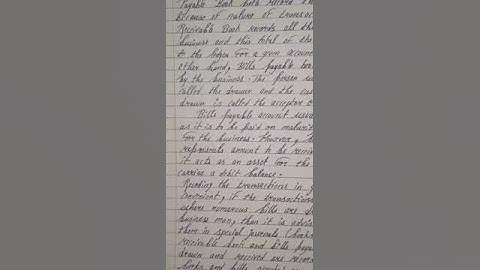 Payable Book both record the
because of nature of transac
Receivable Book records all th
business and this total of the
to the ledger for a given accoun
other hand, Bills payable bo
by the business. The person w
called the drawer and the cus
drawn is called the acceptor o
Bills payable account usua
as it is to be paid on maturit
for the business. However,
represents amount to be recei
it acts as an asset for the
carries a debit balance.
Recording the transactions in
convenient, if the transactions
where numerous bills are d
business man, then it is advis
them in special journals
receivable book and bills paya
drawn and received are recor